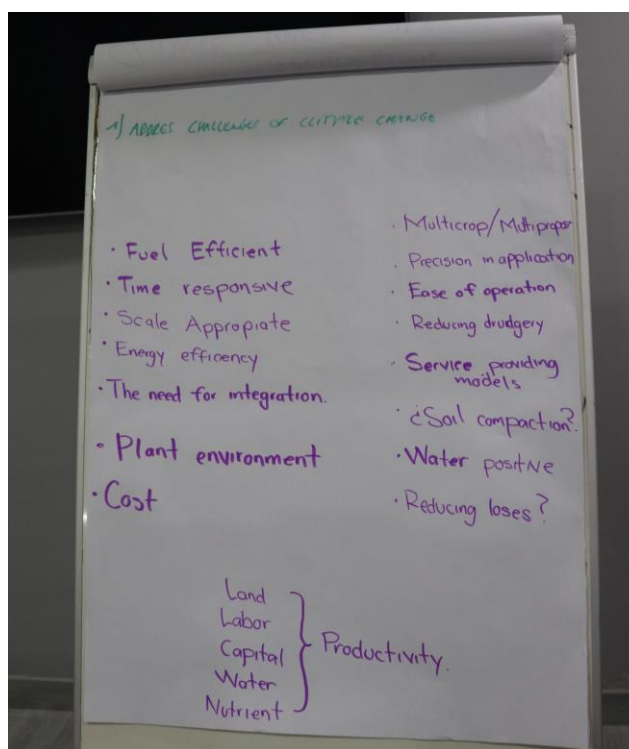 1) ADDRES CHALLENGES OF CLIMATE CHANGE
· Fuel Efficient
· Time responsive
· Scale Appropiate
· Energy efficency
· The need for integration.
· Plant environment
· Cost
· Multicrop/Multipropos
· Precision in application
· Ease of operation
· Reducing drudgery
· Service providing
models
· ¿Soil compaction?
· Water positive
· Reducing loses?
Land
Labor
Capital
Water
Nutrient
} Productivity.